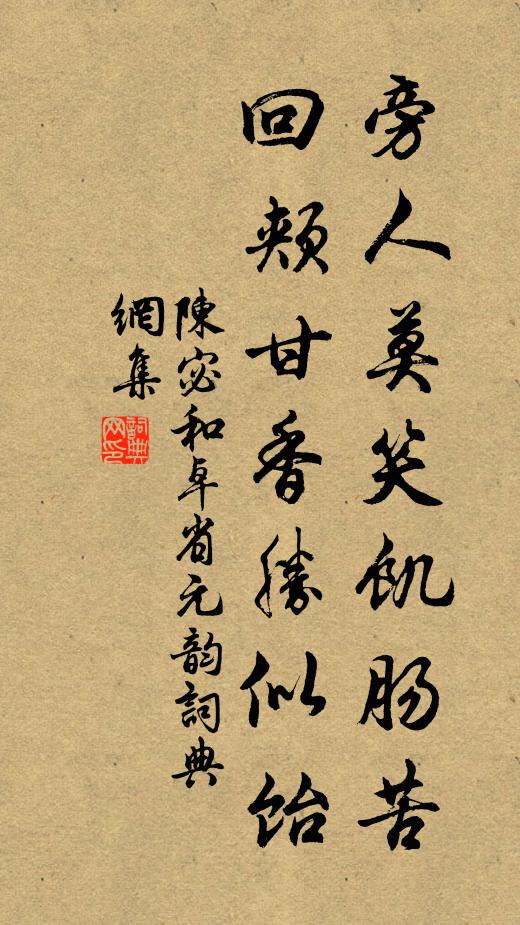 旁人莫笑飢肠苦
回頰甘香勝似飴
陳宓和卓省元韵詞典
網集
詞典網印